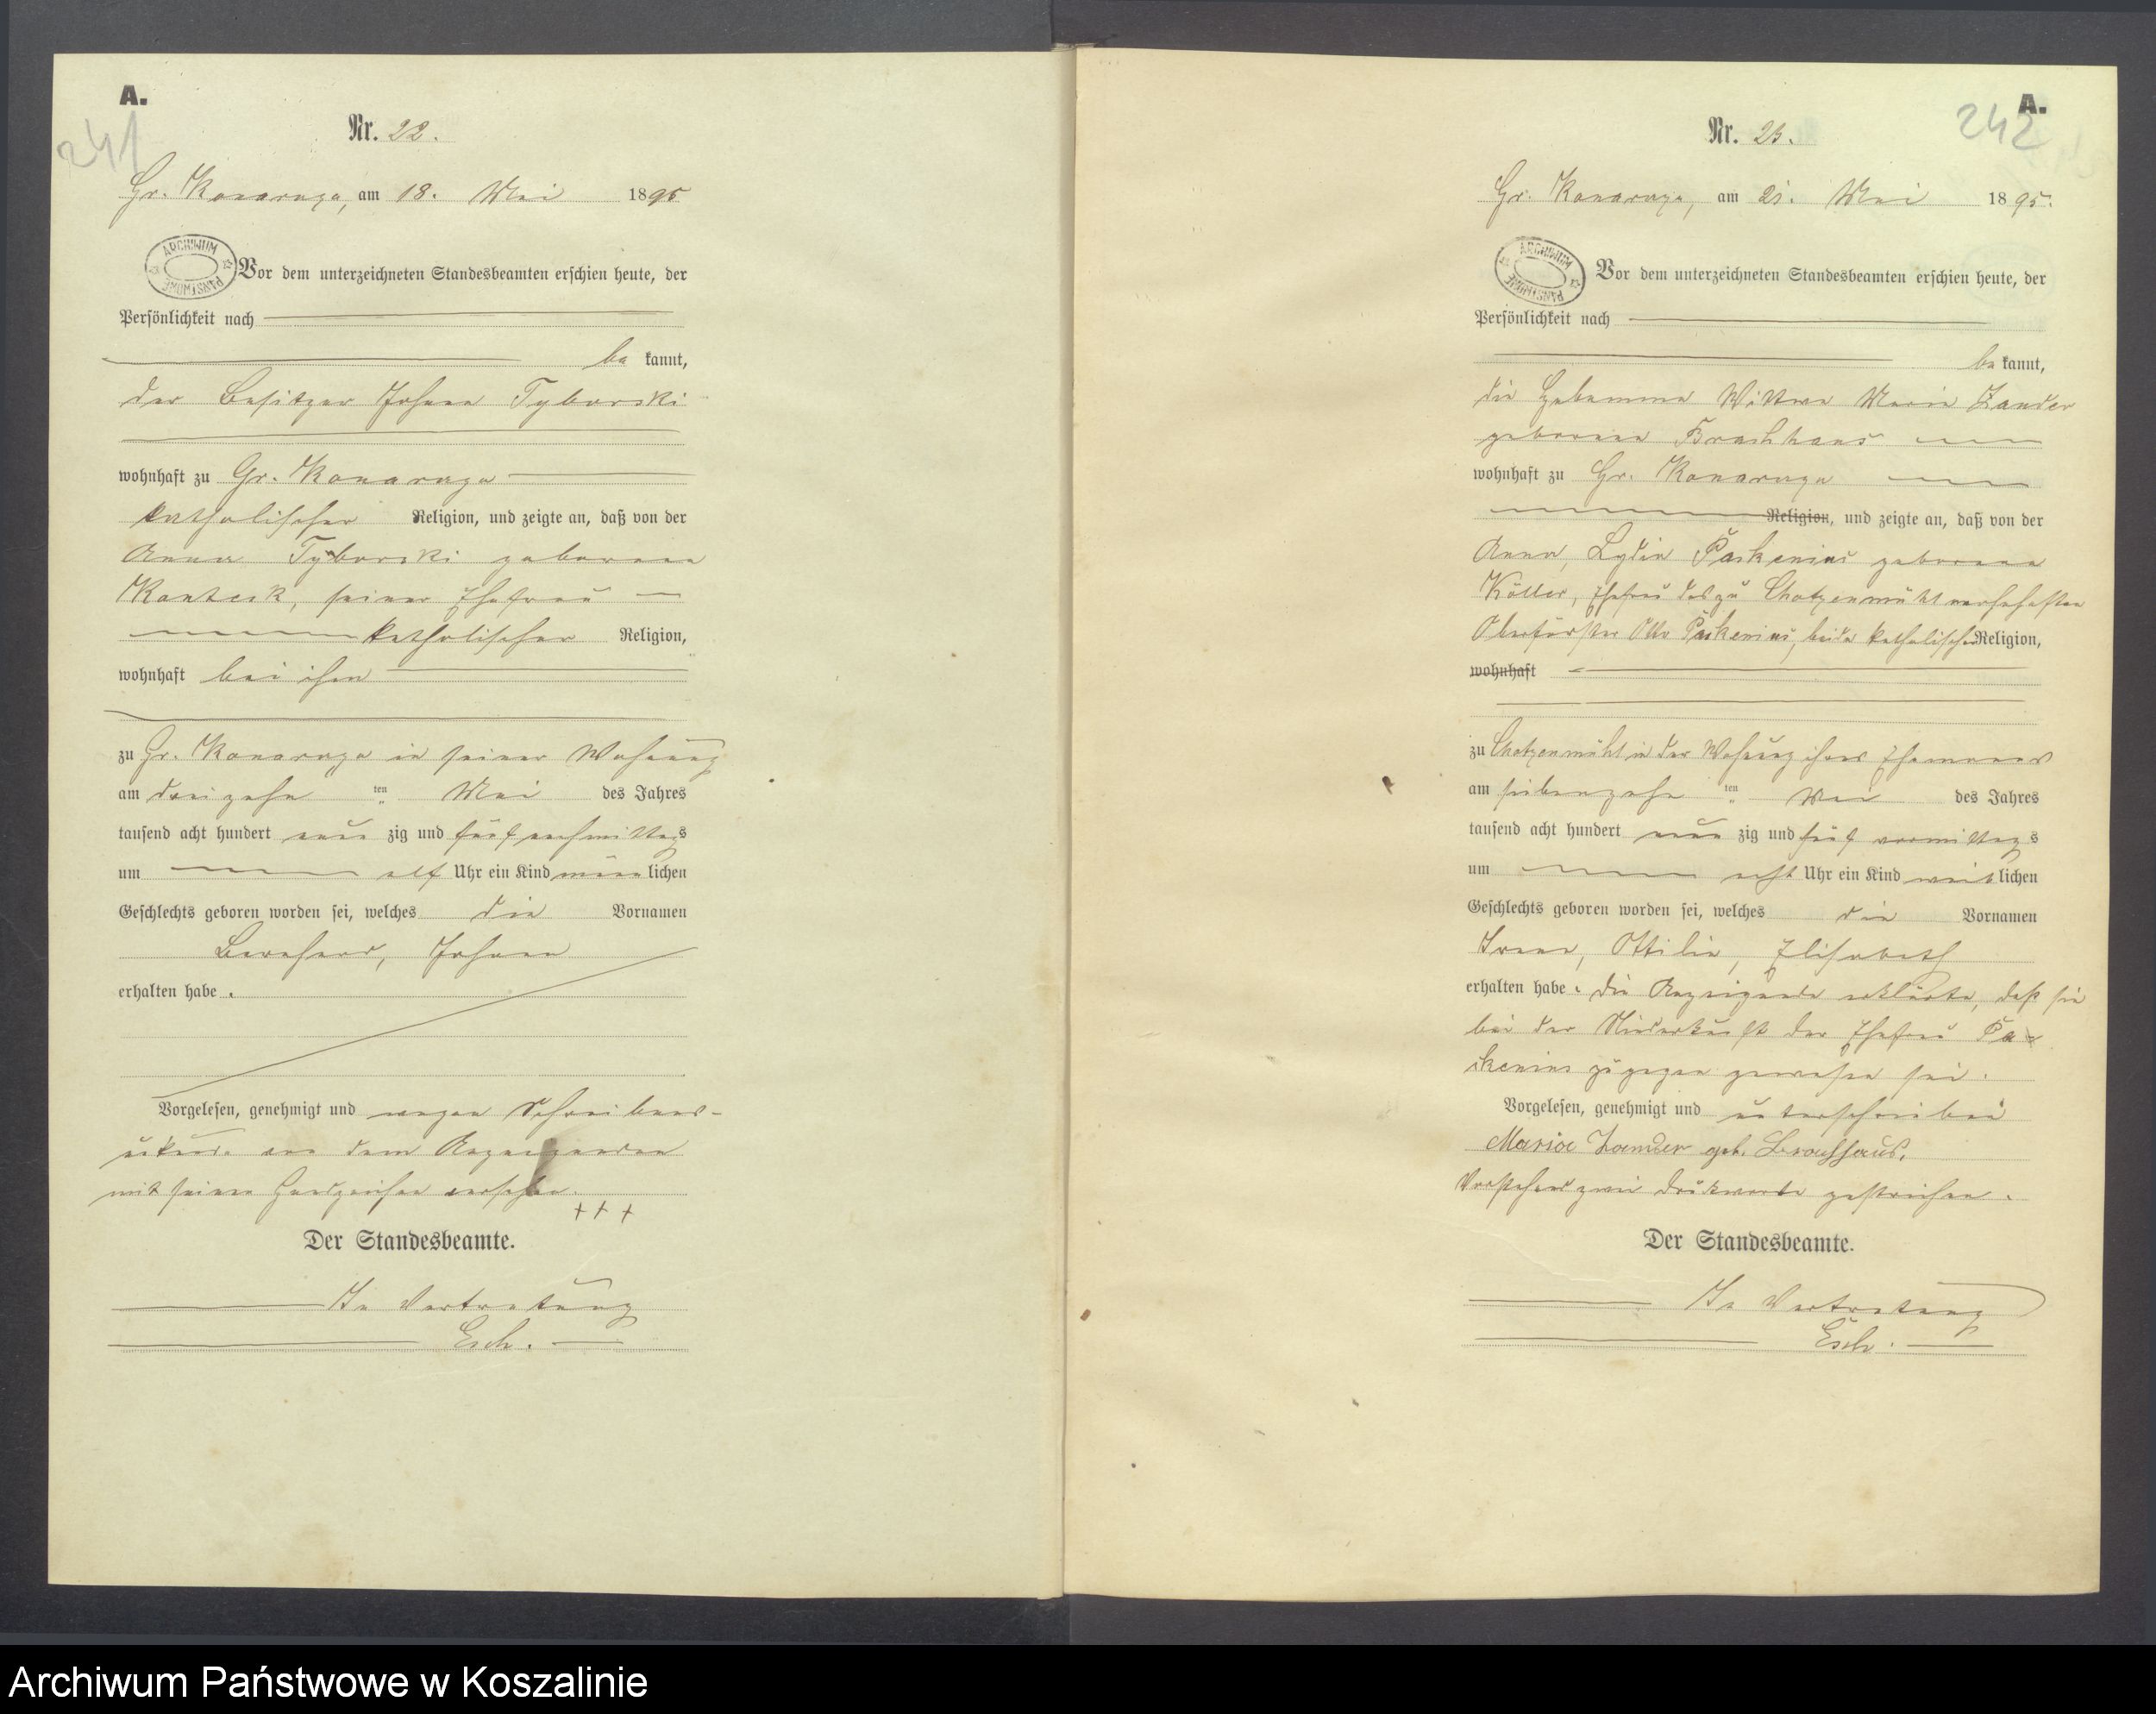 A.
241
Nr. 22.
Gr. Konarczyn, am 18. Mai 1895
ARCHIWUM PAŃSTWOWE
Vor dem unterzeichneten Standesbeamten erschien heute, der
Persönlichkeit nach
be kannt,
der Besitzer Johann Tyborski
wohnhaft zu Gr. Konarczyn
katholischer Religion, und zeigte an, daß von der
Anna Tyborski geborene
seiner Ehefrau
katholischer Religion,
wohnhaft bei ihm
zu Gr. Konarczyn in seiner Wohnung
am dreizehn ten Mai des Jahres
tausend acht hundert neun zig und fünf nachmittags
um elf Uhr ein Kind männlichen
Geschlechts geboren worden sei, welches die Vornamen
Bernhard, Johann
erhalten habe.
Vorgelesen, genehmigt und wegen Schreibens-
unkunde von dem Anzeigenden
mit seinem Handzeichen versehen.
+++
Der Standesbeamte.
In Vertretung
Esch.
A.
242
Nr. 23.
Gr. Konarczyn, am 21. Mai 1895.
ARCHIWUM PAŃSTWOWE
Vor dem unterzeichneten Standesbeamten erschien heute, der
Persönlichkeit nach
be kannt,
die Hebamme Wittwe Maria Zander
geborene Brashhaus
wohnhaft zu Gr. Konarczyn
Religion, und zeigte an, daß von der
Anna, Lydia Paskenius geborene
Köller, Ehefrau des zu Chotzenmühl wohnhaften
Oberförster Otto Paskenius, beide katholischer Religion,
wohnhaft
zu Chotzenmühl in der Wohnung ihres Ehemannes
am siebenzehn ten Mai des Jahres
tausend acht hundert neun zig und fünf vormittags
um acht Uhr ein Kind weiblichen
Geschlechts geboren worden sei, welches die Vornamen
Irene, Ottilie, Elisabeth
erhalten habe. Die Anzeigende erklärte, daß sie
bei der Niederkunft der Ehefrau Pa-
skenius zugegen gewesen sei.
Vorgelesen, genehmigt und unterschrieben
Maria Zander geb. Brashhaus.
Vorstehend zwei Druckworte gestrichen.
Der Standesbeamte.
In Vertretung
Esch.
Archiwum Państwowe w Koszalinie